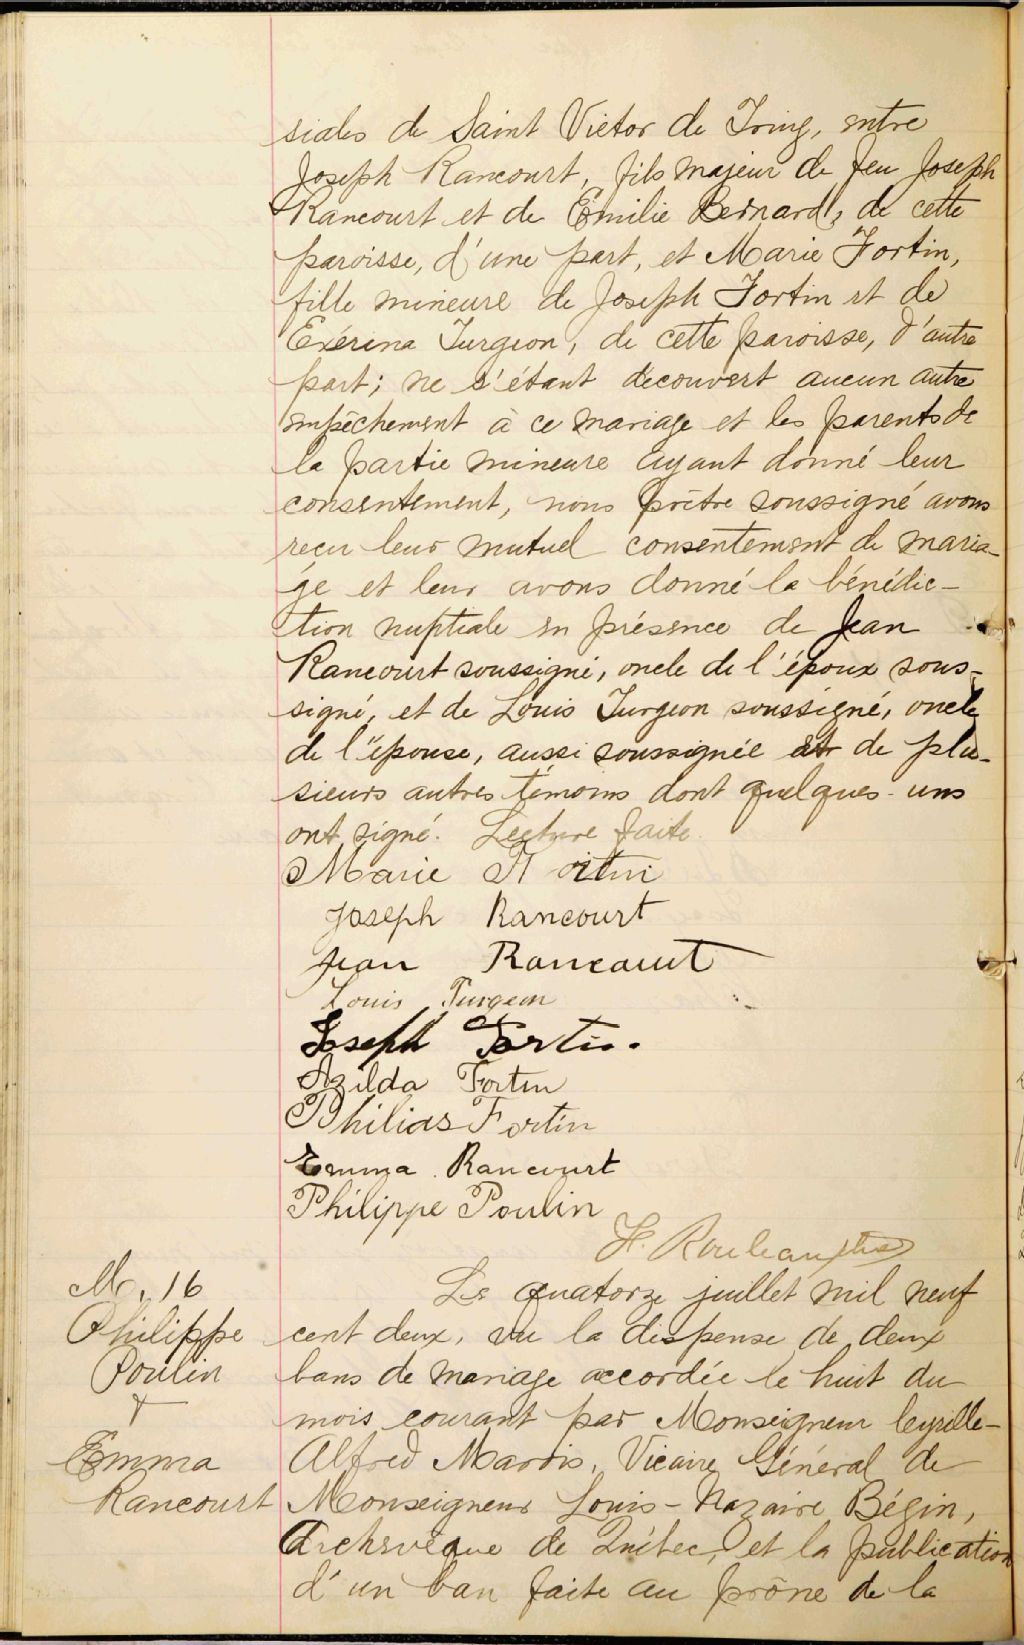 siales de Saint Victor de Tring, entre
Joseph Rancourt, fils majeur de feu Joseph
Rancourt et de Emilie Bernard, de cette
paroisse, d'une part, et Marie Fortin,
fille mineure de Joseph Fortin et de
Exérina Turgeon, de cette paroisse, d'autre
part; ne s'étant découvert aucun autre
empêchement à ce mariage et les parents de
la partie mineure ayant donné leur
consentement, nous prêtre soussigné avons
reçu leur mutuel consentement de maria-
ge et leur avons donné la bénédic-
tion nuptiale en présence de Jean
Rancourt soussigné, oncle de l'époux sous-
signé, et de Louis Turgeon soussigné, oncle
de l'épouse, aussi soussignée et de plu-
sieurs autres témoins dont quelques-uns
ont signé. Lecture faite.
Marie Fortin
Joseph Rancourt
Jean Rancourt
Louis Turgeon
Joseph Fortin.
Azilda Fortin
Philias Fortin
Emma Rancourt
Philippe Poulin
H. Rouleau ptre
M. 16
Philippe
Poulin
+
Emma
Rancourt
Le quatorze juillet mil neuf
cent deux, vu la dispense de deux
bans de mariage accordée le huit du
mois courant par Monseigneur Cyrille-
Alfred Marois, Vicaire Général de
Monseigneur Louis-Nazaire Bégin,
Archevêque de Québec, et la publication
d'un ban faite au prône de la